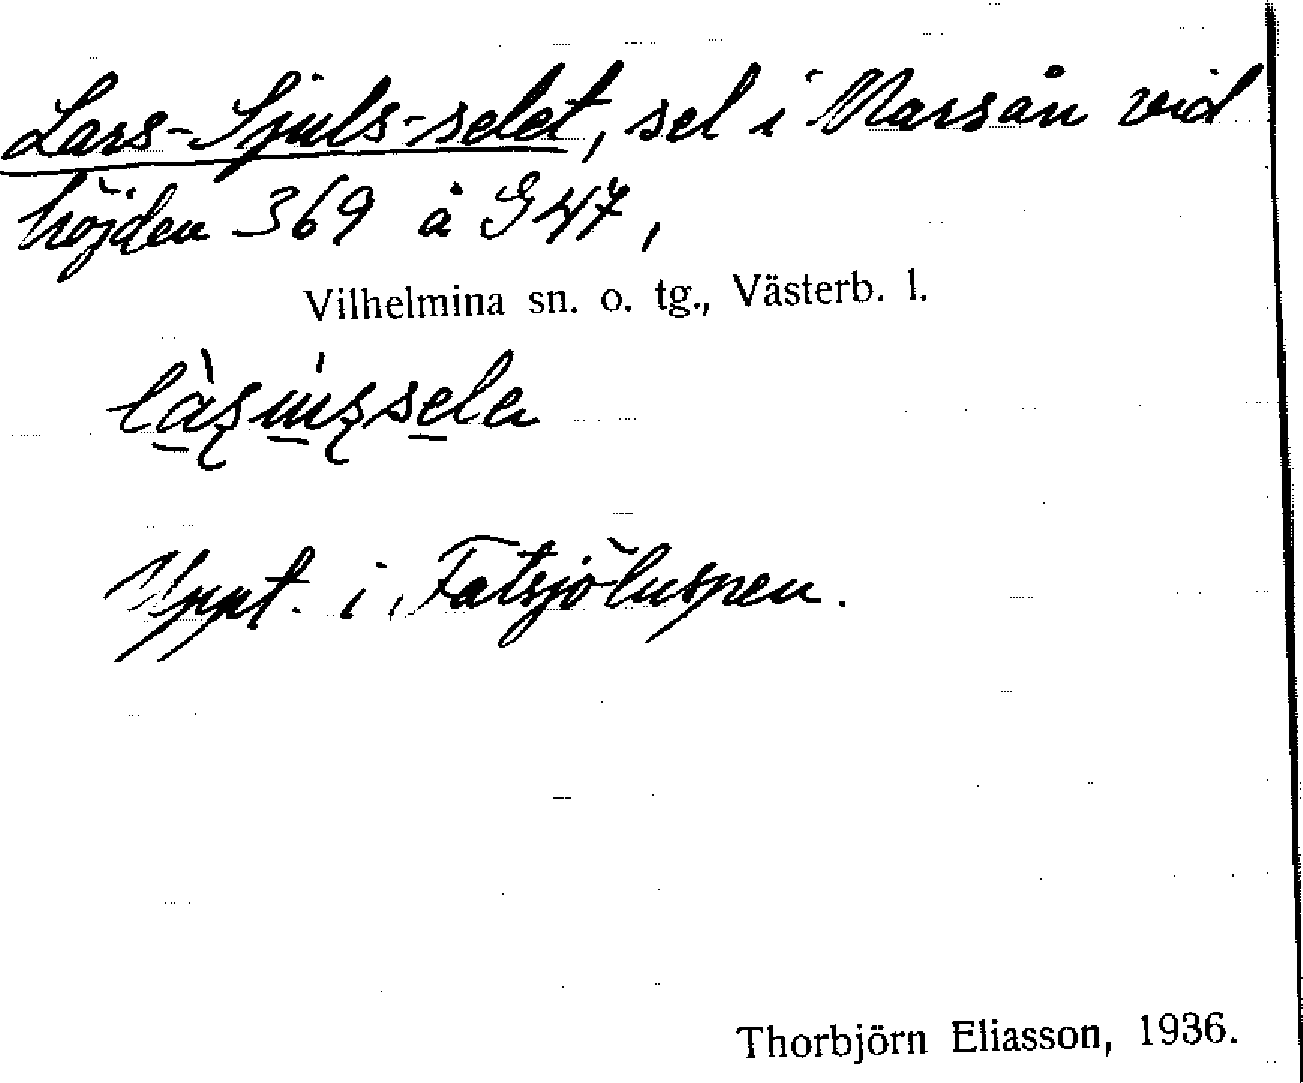 Lars-Sjuls-selet, sel i Marsån vid
höjden 369 å G 47,
Vilhelmina sn. o. tg., Västerb. l.
Uppt. i Fatsjöluspen.
Thorbjörn Eliasson, 1936.